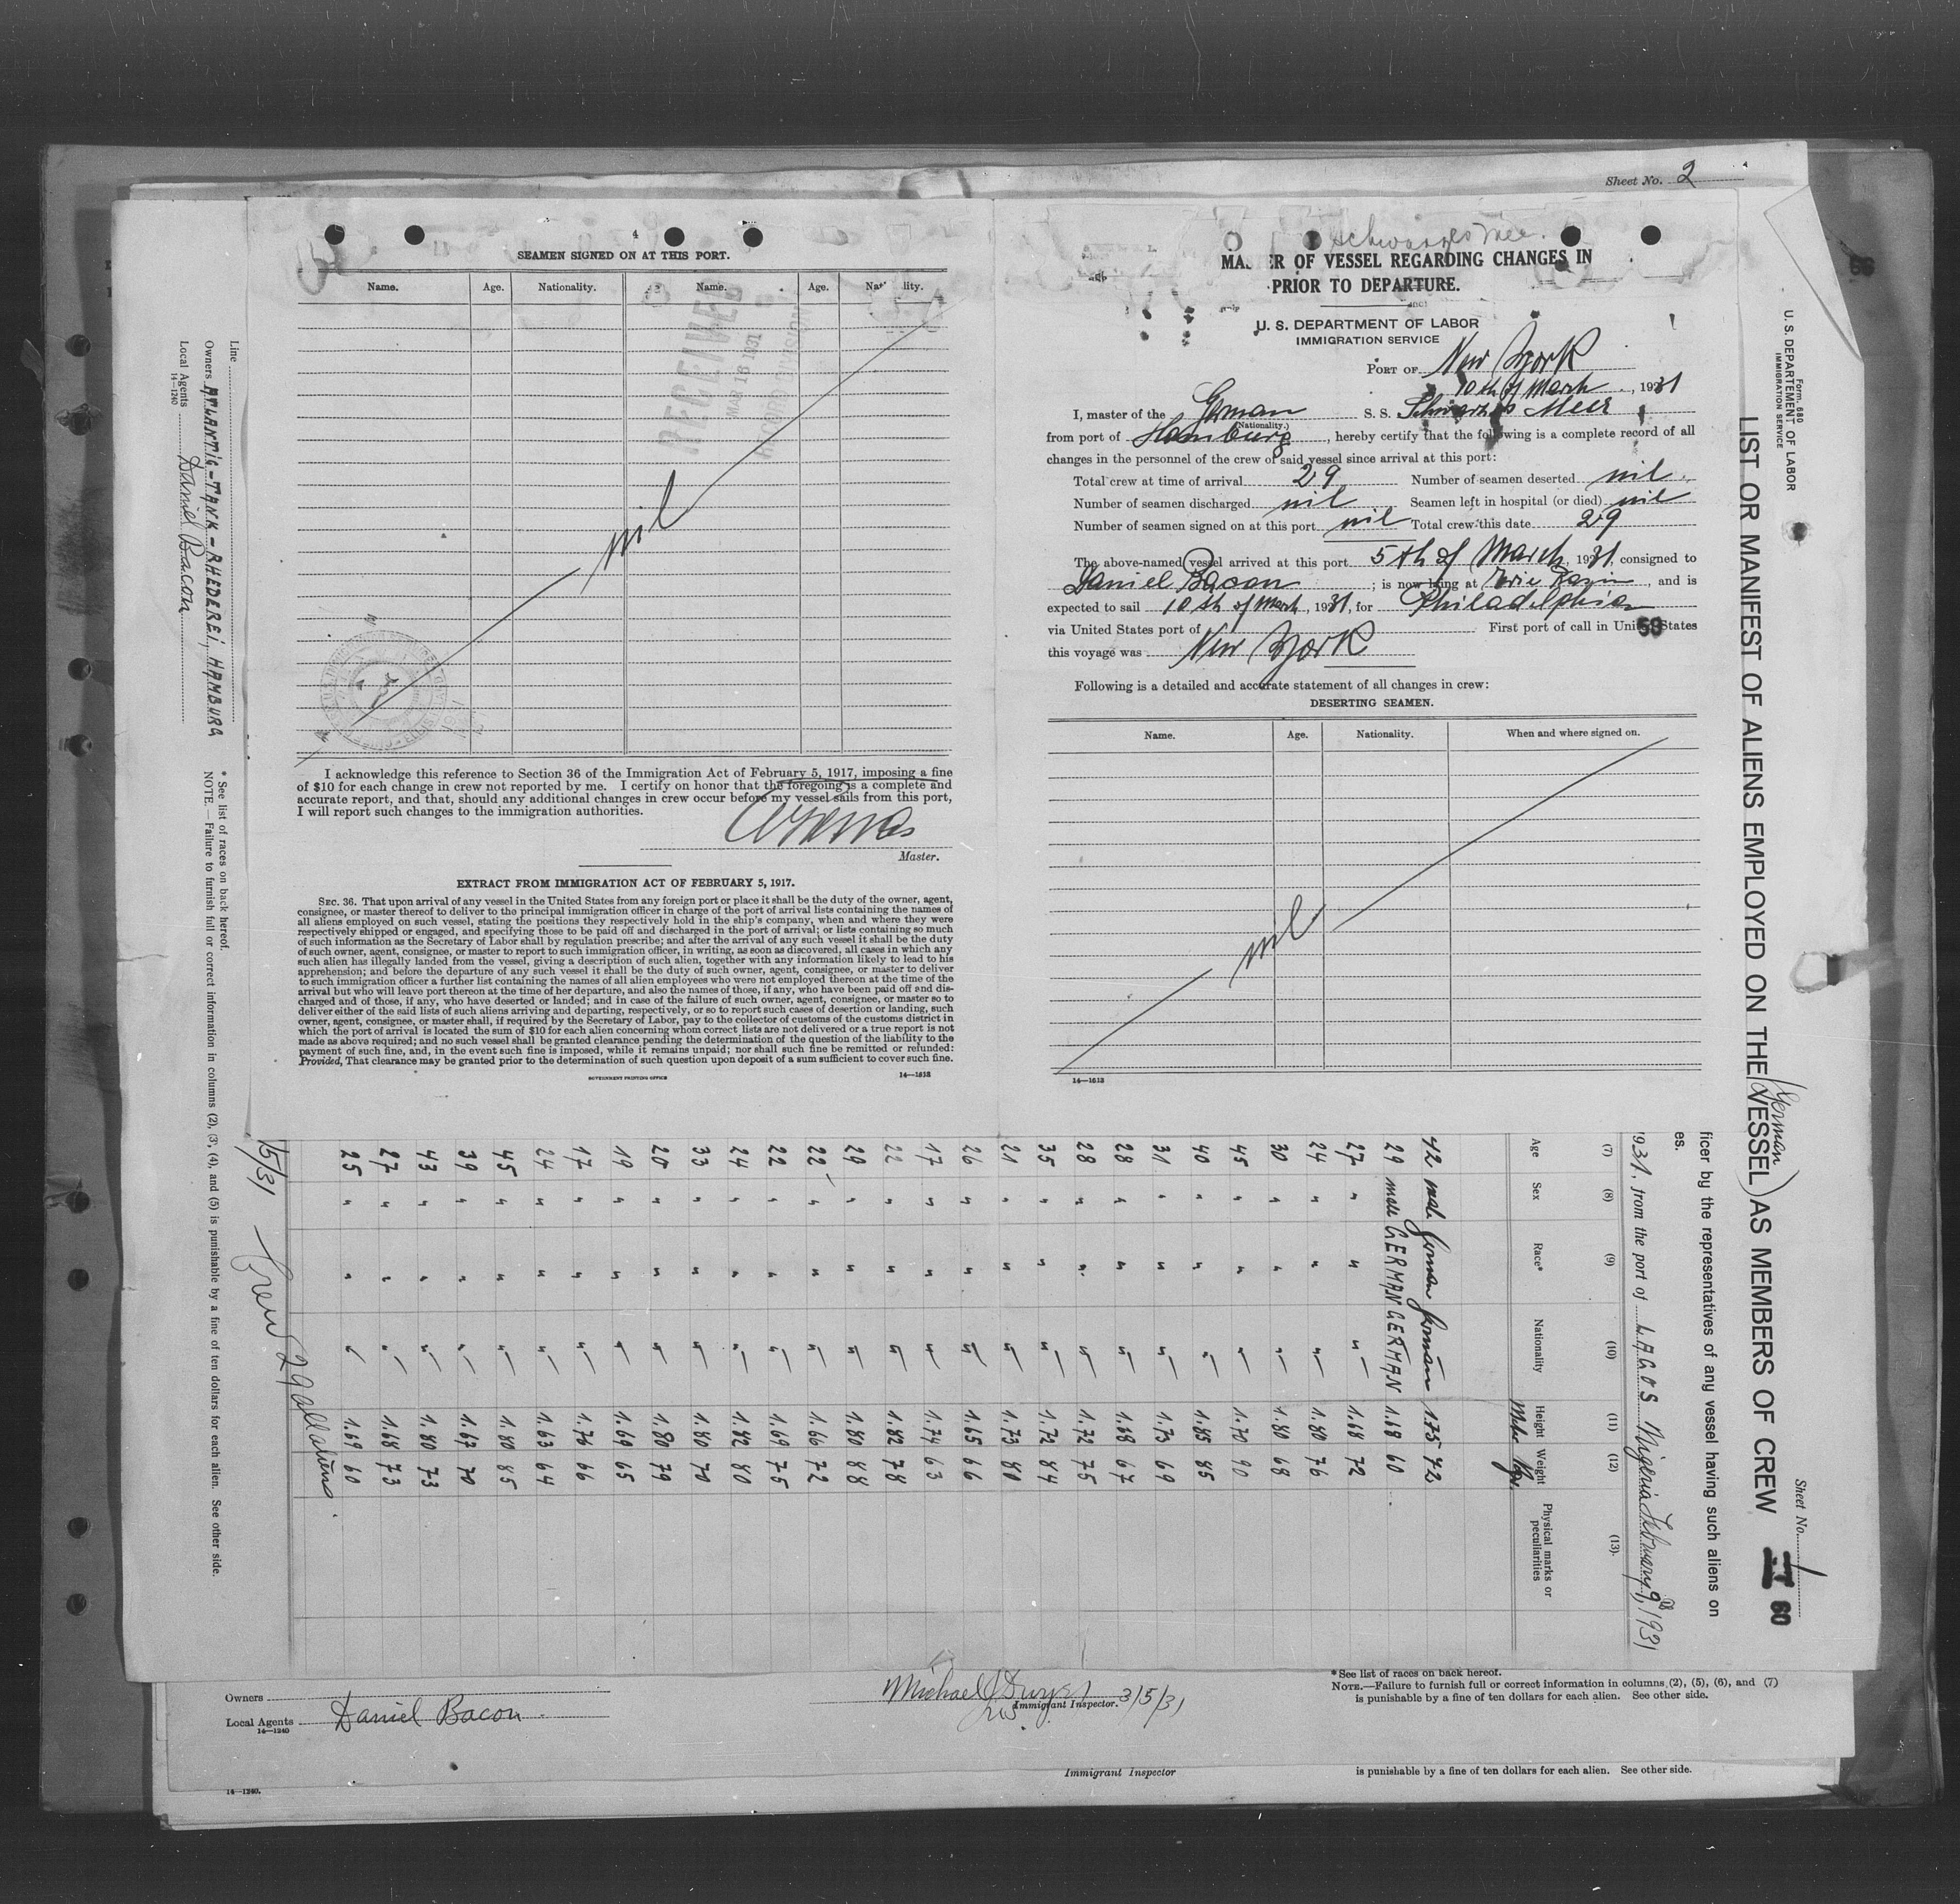 Sheet No. 2
4
SEAMEN SIGNED ON AT THIS PORT.
Name. Age. Nationality. Name. Age. Nat lity.
RECEIVED
MAR 16 1931
RECORD DIVISION
nil
I acknowledge this reference to Section 36 of the Immigration Act of February 5, 1917, imposing a fine
of $10 for each change in crew not reported by me. I certify on honor that the foregoing is a complete and
accurate report, and that, should any additional changes in crew occur before my vessel sails from this port,
I will report such changes to the immigration authorities.
Master.
EXTRACT FROM IMMIGRATION ACT OF FEBRUARY 5, 1917.
SEC. 36. That upon arrival of any vessel in the United States from any foreign port or place it shall be the duty of the owner, agent,
consignee, or master thereof to deliver to the principal immigration officer in charge of the port of arrival lists containing the names of
all aliens employed on such vessel, stating the positions they respectively hold in the ship's company, when and where they were
respectively shipped or engaged, and specifying those to be paid off and discharged in the port of arrival; or lists containing so much
of such information as the Secretary of Labor shall by regulation prescribe; and after the arrival of any such vessel it shall be the duty
of such owner, agent, consignee, or master to report to such immigration officer, in writing, as soon as discovered, all cases in which any
such alien has illegally landed from the vessel, giving a description of such alien, together with any information likely to lead to his
apprehension; and before the departure of any such vessel it shall be the duty of such owner, agent, consignee, or master to deliver
to such immigration officer a further list containing the names of all alien employees who were not employed thereon at the time of the
arrival but who will leave port thereon at the time of her departure, and also the names of those, if any, who have been paid off and dis-
charged and of those, if any, who have deserted or landed; and in case of the failure of such owner, agent, consignee, or master so to
deliver either of the said lists of such aliens arriving and departing, respectively, or so to report such cases of desertion or landing, such
owner, agent, consignee, or master shall, if required by the Secretary of Labor, pay to the collector of customs of the customs district in
which the port of arrival is located the sum of $10 for each alien concerning whom correct lists are not delivered or a true report is not
made as above required; and no such vessel shall be granted clearance pending the determination of the question of the liability to the
payment of such fine, and, in the event such fine is imposed, while it remains unpaid; nor shall such fine be remitted or refunded:
Provided, That clearance may be granted prior to the determination of such question upon deposit of a sum sufficient to cover such fine.
GOVERNMENT PRINTING OFFICE 14—1618
Schwarzes Meer.
MAS ER OF VESSEL REGARDING CHANGES IN
PRIOR TO DEPARTURE.
U. S. DEPARTMENT OF LABOR
IMMIGRATION SERVICE
PORT OF New York
10th of March, 1931
I, master of the German S. S. Schwarzes Meer
(Nationality.)
from port of Hamburg, hereby certify that the following is a complete record of all
changes in the personnel of the crew of said vessel since arrival at this port:
Total crew at time of arrival 29 Number of seamen deserted nil
Number of seamen discharged nil Seamen left in hospital (or died) nil
Number of seamen signed on at this port nil Total crew this date 29
The above-named vessel arrived at this port 5th of March, 1931, consigned to
Daniel Bacon; is now lying at Erie Basin, and is
expected to sail 10th of March, 1931, for Philadelphia
via United States port of First port of call in United States
58
this voyage was New York
Following is a detailed and accurate statement of all changes in crew:
DESERTING SEAMEN.
Name. Age. Nationality. When and where signed on.
nil
14—1618
Form 680
U. S. DEPARTMENT OF LABOR
IMMIGRATION SERVICE
Sheet No. 1
60
LIST OR MANIFEST OF ALIENS EMPLOYED ON THE (German) VESSEL AS MEMBERS OF CREW
ficer by the representatives of any vessel having such aliens on
es.
931, from the port of LAGOS Nigeria February 9th, 1931
(7) (8) (9) (10) (11) (12) (13)
Age Sex Race* Nationality Height Weight Physical marks or peculiarities
Meter Kgr.
42 male German German 1.75 72
29 male GERMAN GERMAN 1.68 60
27 " " " 1.68 72
24 " " " 1.80 76
30 " " " 1.80 68
45 " " " 1.70 90
40 " " " 1.85 85
31 " " " 1.73 69
28 " " " 1.68 67
28 " " " 1.72 75
35 " " " 1.72 84
21 " " " 1.73 80
26 " " " 1.65 66
17 " " " 1.74 63
22 " " " 1.82 78
29 " " " 1.80 88
22 " " " 1.66 72
22 " " " 1.69 75
24 " " " 1.82 80
33 " " " 1.80 70
20 " " " 1.80 79
19 " " " 1.69 65
17 " " " 1.76 66
24 " " " 1.63 64
45 " " " 1.80 85
39 " " " 1.67 70
43 " " " 1.80 73
27 " " " 1.68 73
25 " " " 1.69 60
15/31 Crew 29 all aliens.
Line
Owners ATLANTIC-TANK-RHEDEREI, HAMBURG
Local Agents Daniel Bacon
14—1240
* See list of races on back hereof.
NOTE.—Failure to furnish full or correct information in columns (2), (3), (4), and (5) is punishable by a fine of ten dollars for each alien. See other side.
Owners
Local Agents Daniel Bacon
14—1240
Michael Dwyer
Immigrant Inspector. 3/5/31
* See list of races on back hereof.
NOTE.—Failure to furnish full or correct information in columns (2), (5), (6), and (7)
is punishable by a fine of ten dollars for each alien. See other side.
Immigrant Inspector
is punishable by a fine of ten dollars for each alien. See other side.
14—1240.